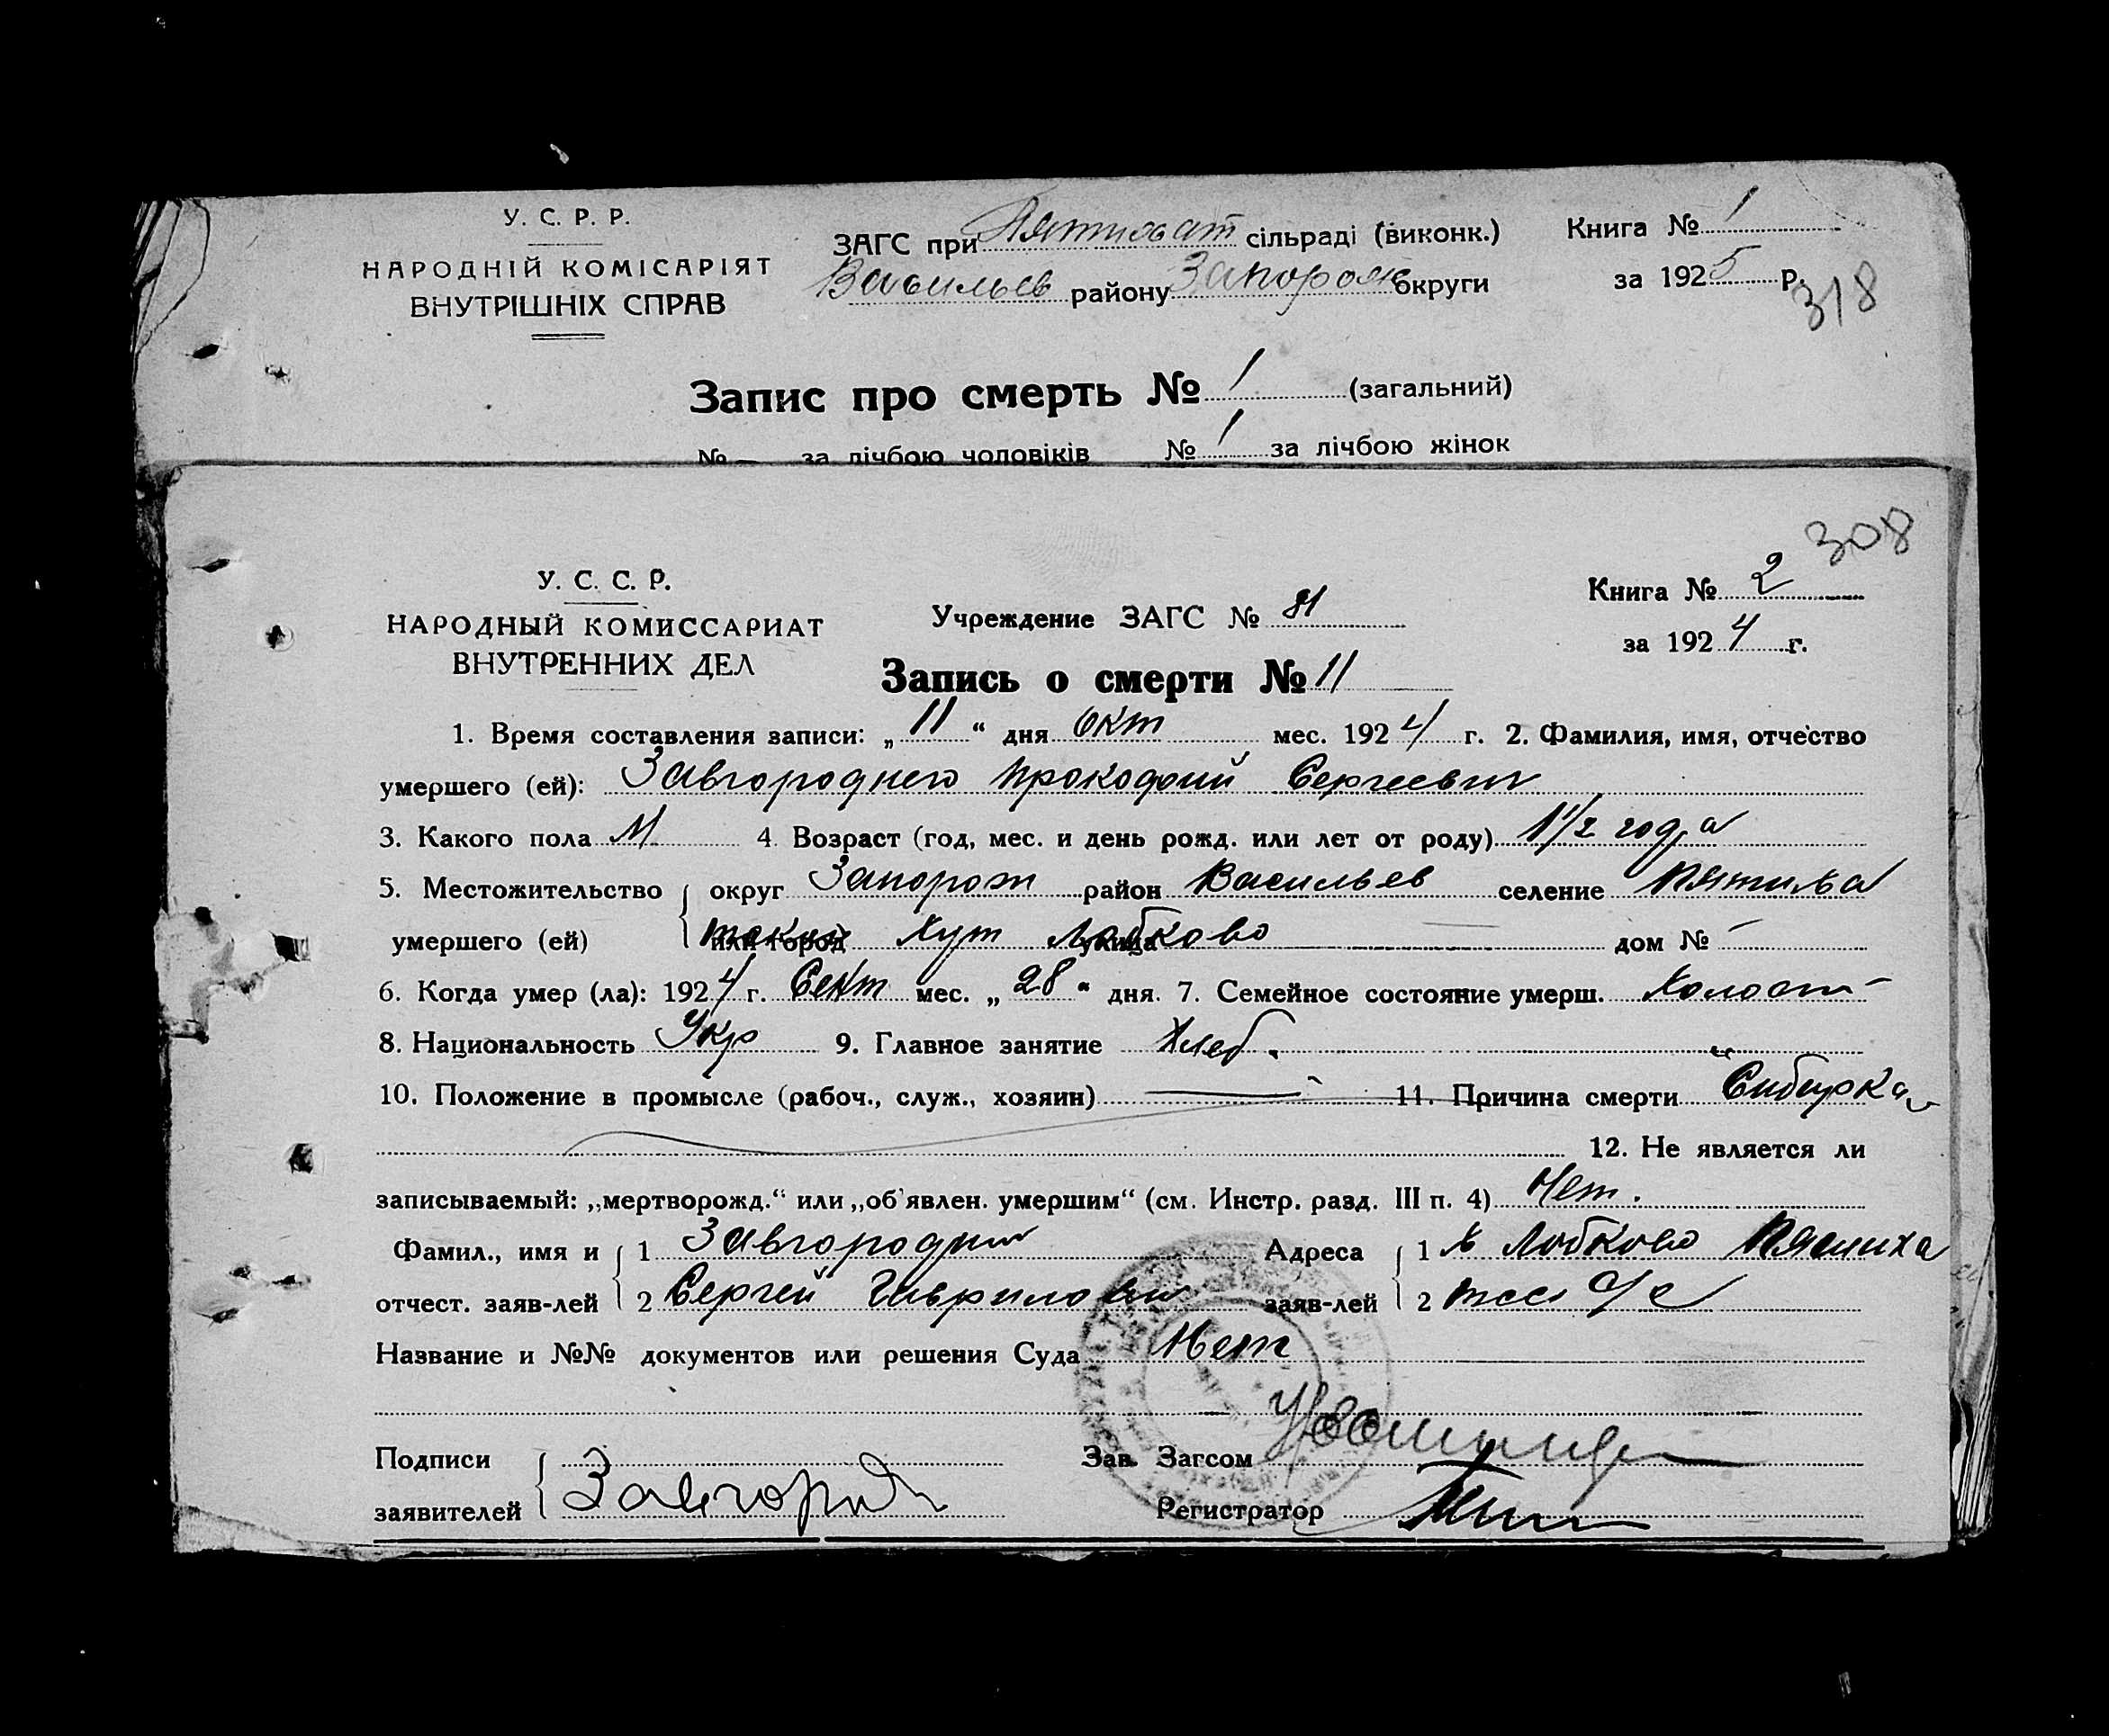 У. С. Р. Р.
НАРОДНІЙ КОМІСАРІЯТ
ВНУТРІШНІХ СПРАВ
ЗАГС при Пятихат сільраді (виконк.)
Васильев району Запорож округи
Книга № 1
за 1925 р.
318
Запис про смерть № 1 (загальний)
№ — за лічбою чоловіків № 1 за лічбою жінок
308
У. С. С. Р.
НАРОДНЫЙ КОМИССАРИАТ
ВНУТРЕННИХ ДЕЛ
Учреждение ЗАГС № 81
Книга № 2
за 1924 г.
Запись о смерти № 11
1. Время составления записи: „11“ дня Окт мес. 1924 г. 2. Фамилия, имя, отчество
умершего (ей): Завгороднего Прокофий Сергеевич
3. Какого пола М 4. Возраст (год, мес. и день рожд. или лет от роду) 1 1/2 года
5. Местожительство округ Запорож район Васильев селение
умершего (ей) или город Хут Лобково улица дом № —
6. Когда умер (ла): 1924 г. Сент мес. „28“ дня. 7. Семейное состояние умерш. Холост
8. Национальность Укр 9. Главное занятие Хлеб.
10. Положение в промысле (рабоч., служ., хозяин) — 11. Причина смерти Сибирка
12. Не является ли
записываемый: „мертворожд.“ или „об'явлен. умершим“ (см. Инстр. разд. III п. 4) Нет.
Фамил., имя и 1 Завгородний Адреса 1 х Лобково
отчест. заяв-лей 2 Сергей Гаврилович заяв-лей 2
Название и №№ документов или решения Суда Нет
Подписи Зав. Загсом
заявителей Завгородн Регистратор